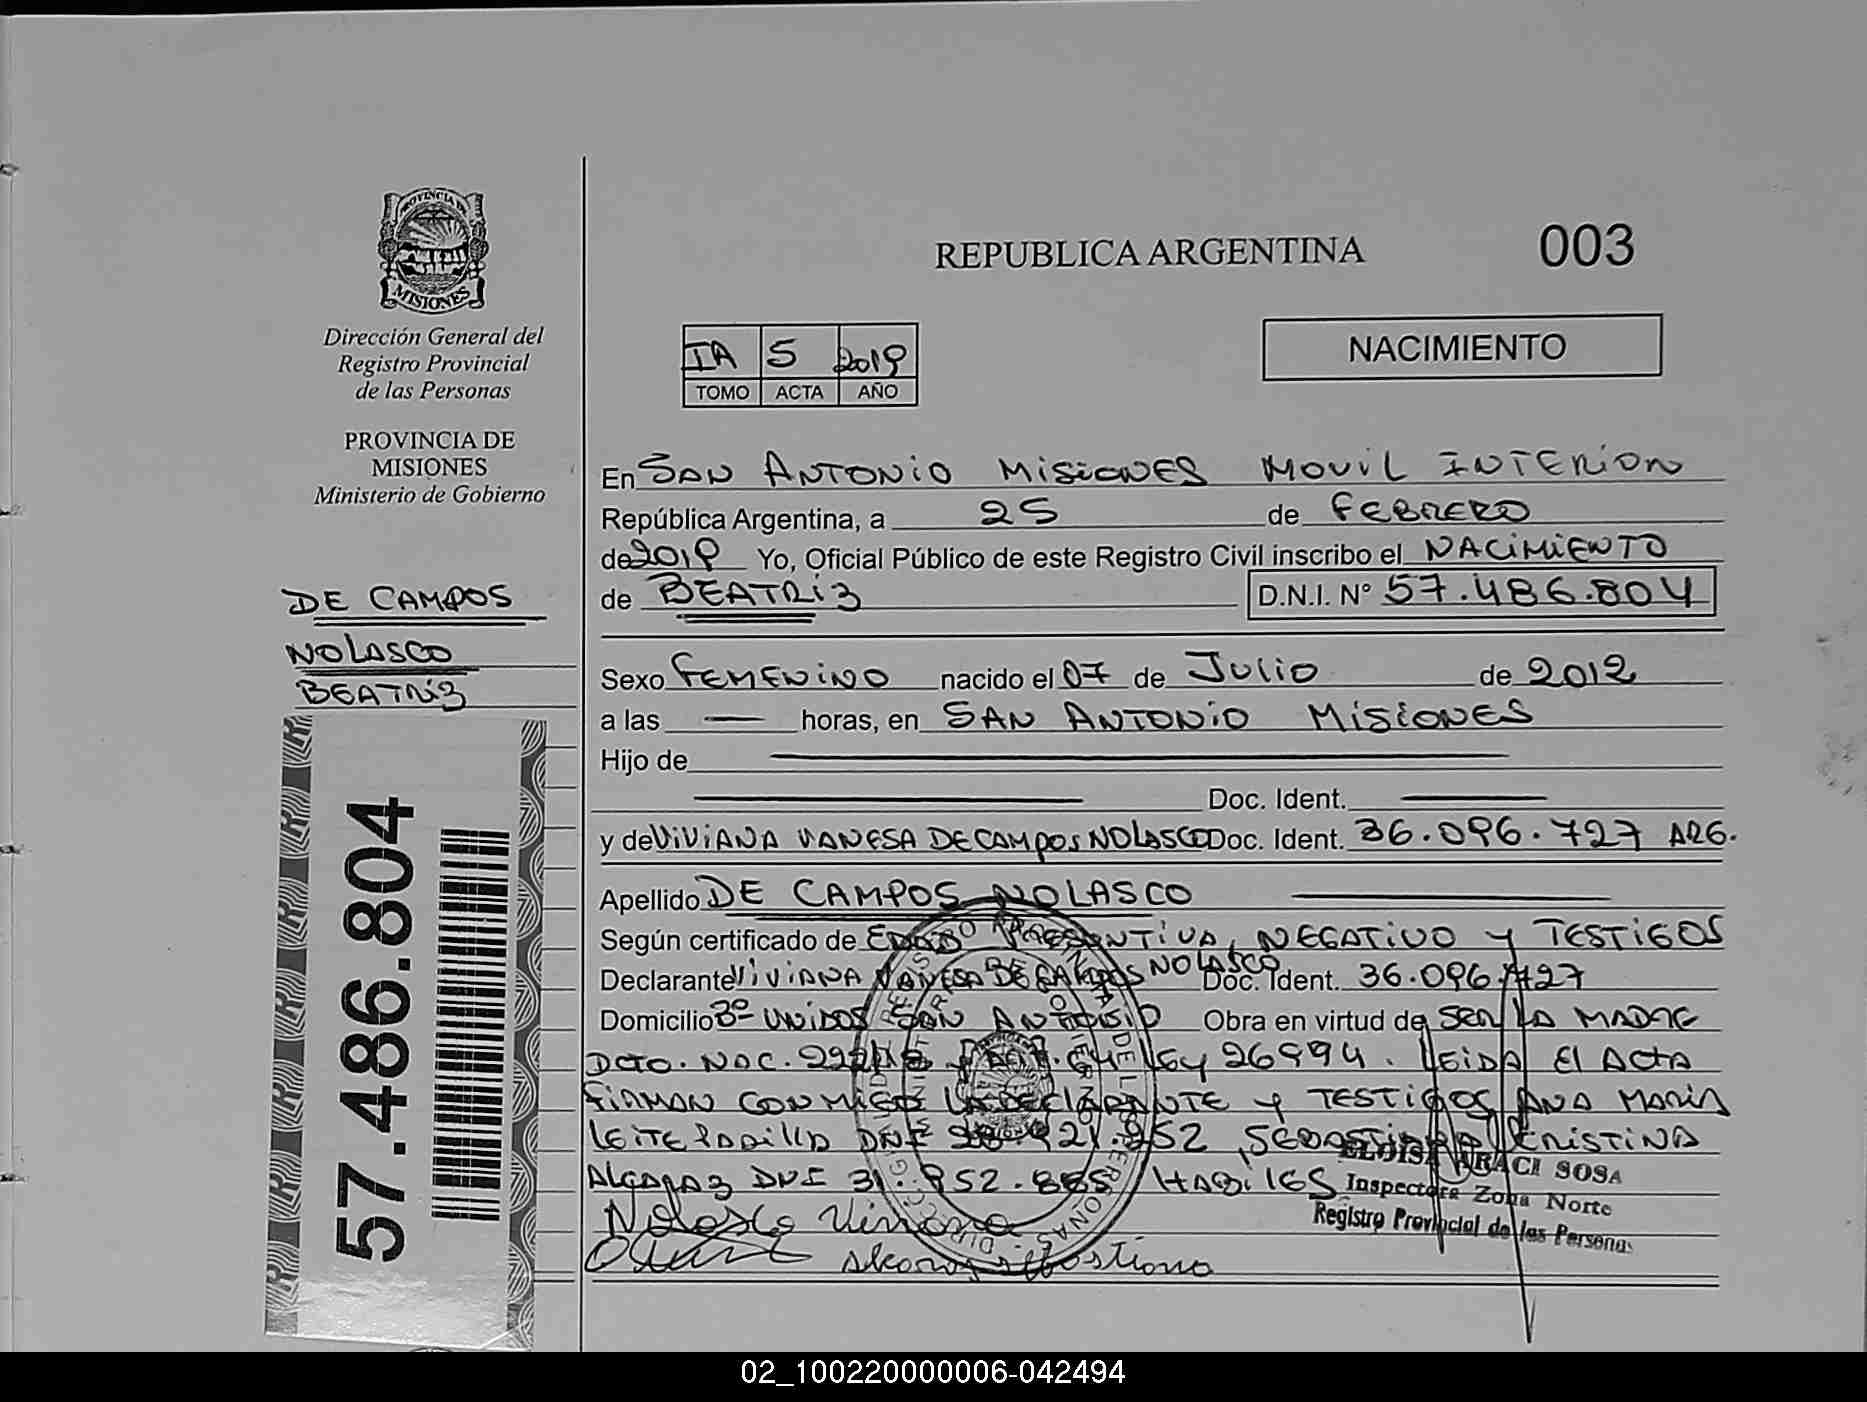 PROVINCIA DE
MISIONES
Dirección General del
Registro Provincial
de las Personas
PROVINCIA DE
MISIONES
Ministerio de Gobierno
DE CAMPOS
NOLASCO
BEATRIZ
57.486.804
REPUBLICA ARGENTINA
003
IA 5 2019
TOMO ACTA AÑO
NACIMIENTO
En SAN ANTONIO MISIONES MOVIL INTERIOR
República Argentina, a 25 de FEBRERO
de 2019 Yo, Oficial Público de este Registro Civil inscribo el NACIMIENTO
de BEATRIZ D.N.I. Nº 57.486.804
Sexo FEMENINO nacido el 07 de JULIO de 2012
a las — horas, en SAN ANTONIO MISIONES
Hijo de
Doc. Ident.
y de VIVIANA VANESA DE CAMPOS NOLASCO Doc. Ident. 36.096.727 ARG.
Apellido DE CAMPOS NOLASCO
Según certificado de EDAD PRESUNTIVA, NEGATIVO y TESTIGOS
Declarante VIVIANA VANESA DE CAMPOS NOLASCO Doc. Ident. 36.096.727
Domicilio 3º UNIDOS SAN ANTONIO Obra en virtud de SER LA MADRE
DCTO. NAC. LEY 26994. LEIDA El ACTA
FIRMAN CONMIGO LA DECLARANTE y TESTIGOS ANA MARIA
LEITE PADILLA DNI SEBASTIANA CRISTINA
ALCARAZ DNI 31.952.885 HABILES
Nolasco Viviana
Sebastiana
ELOISA ARACI SOSA
Inspectora Zona Norte
Registro Provincial de las Personas
02_100220000006-042494